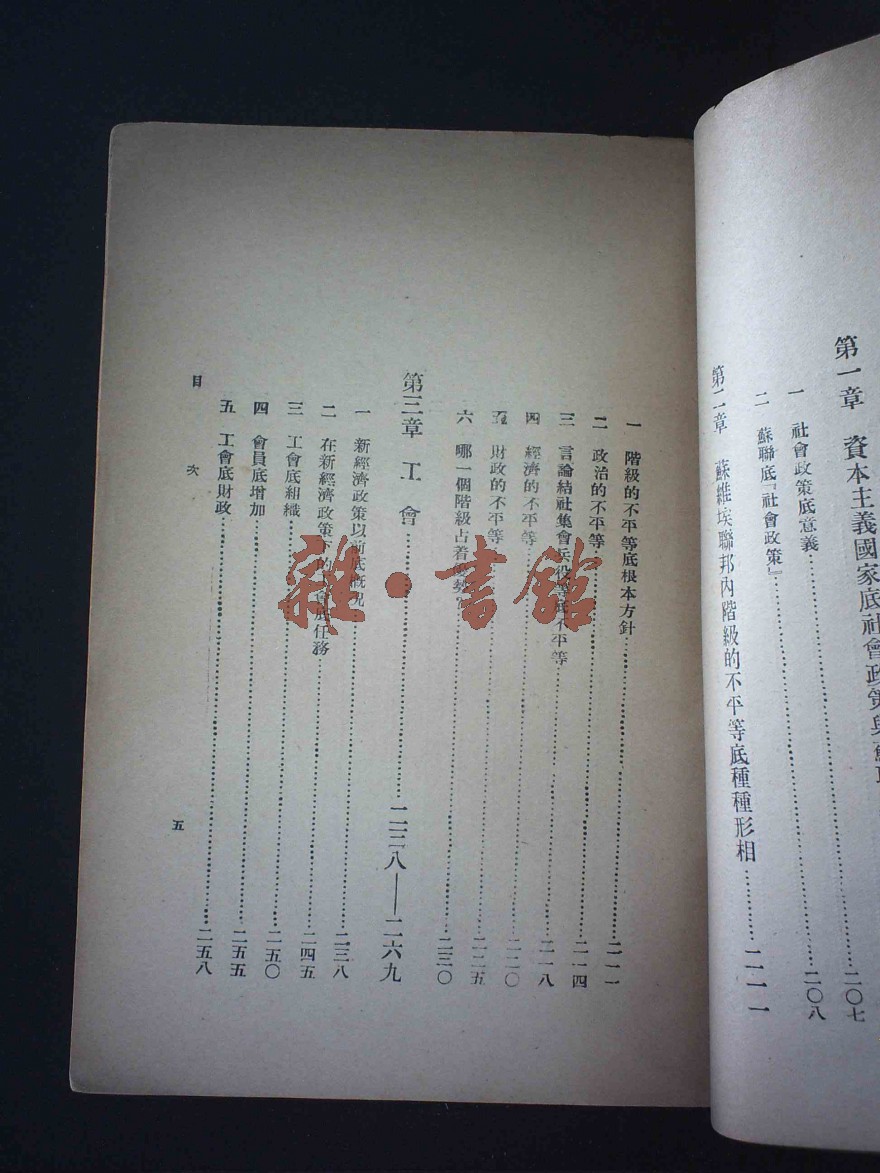 第一章 資本主義國家底社會政策與蘇
一 社會政策底意義……二〇七
二 蘇聯底『社會政策』……二〇八
第二章 蘇維埃聯邦內階級的不平等底種種形相……二一一
一 階級的不平等底根本方針……二一一
二 政治的不平等……二一四
三 言論結社集會兵役等底不平等……二一八
四 經濟的不平等……二二〇
五 財政的不平等……二二五
六 哪一個階級占着優勢……二三〇
第三章 工會……二三八——二六九
一 新經濟政策以前底概況……二三八
二 在新經濟政策下的工會底任務……二四五
三 工會底組織……二五〇
四 會員底增加……二五五
五 工會底財政……二五八
目次
五
雜·書館